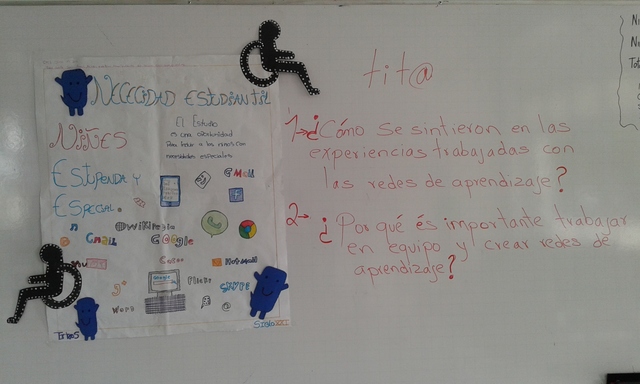 NECECIDAD ESTUDIANTIL
NIÑES
El Estudio
es una oportunidad
Para todos a los niños con
necesidades especiales
ESTUPENDA Y
ESPECIAL.
GMail
@wikipedia
Gmail
Google
Hotmail
Google
Flickr
SKYPE
Word
TITAS
Siglo XXI
tit@
1→ ¿Cómo se sintieron en las
experiencias trabajadas con
las redes de aprendizaje?
2→ ¿Por qué és importante trabajar
en equipo y crear redes de
aprendizaje?
Tot